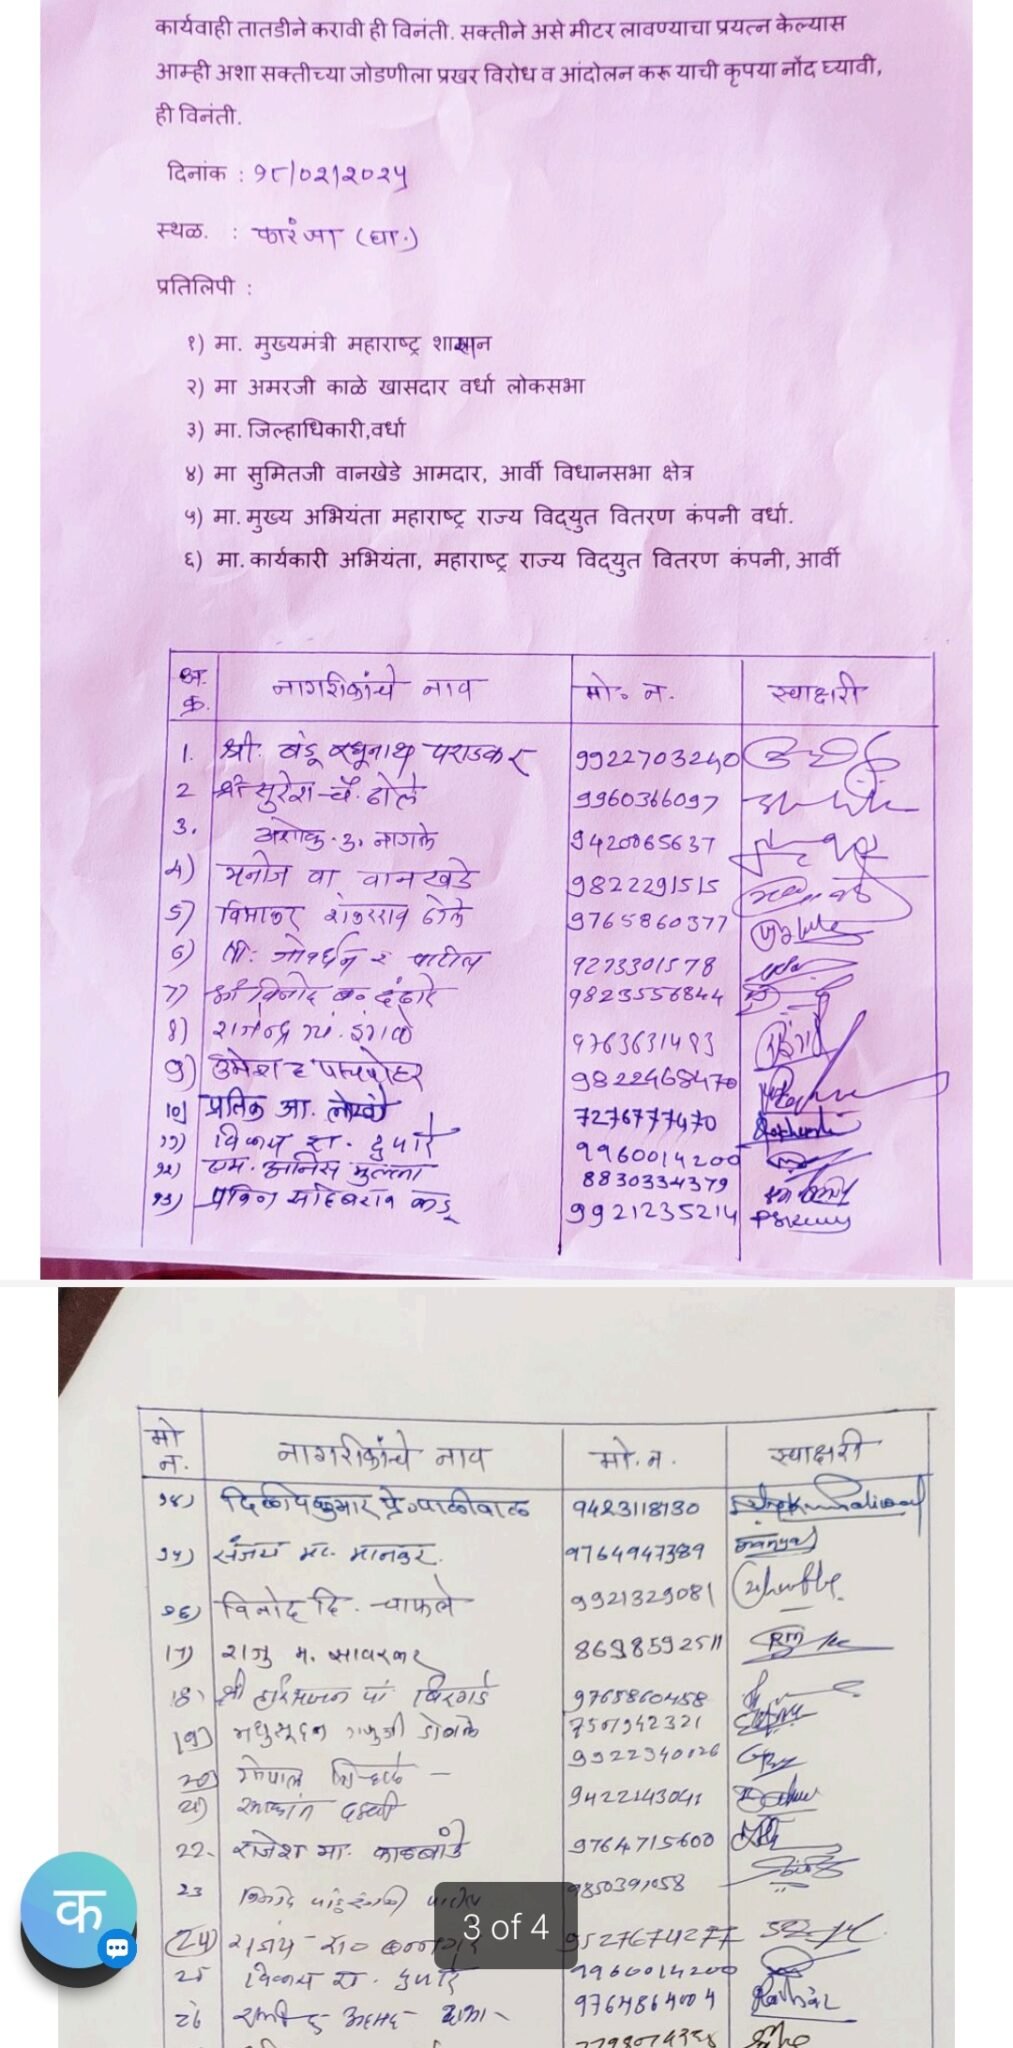 कार्यवाही तातडीने करावी ही विनंती. सक्तीने असे मीटर लावण्याचा प्रयत्न केल्यास
आम्ही अशा सक्तीच्या जोडणीला प्रखर विरोध व आंदोलन करू याची कृपया नोंद घ्यावी,
ही विनंती.
दिनांक : १८/०२/२०२५
स्थळ. : कारंजा (घा.)
प्रतिलिपी :
१) मा. मुख्यमंत्री महाराष्ट्र शासन
२) मा अमरजी काळे खासदार वर्धा लोकसभा
३) मा. जिल्हाधिकारी,वर्धा
४) मा सुमितजी वानखेडे आमदार, आर्वी विधानसभा क्षेत्र
५) मा. मुख्य अभियंता महाराष्ट्र राज्य विद्युत वितरण कंपनी वर्धा.
६) मा. कार्यकारी अभियंता, महाराष्ट्र राज्य विद्युत वितरण कंपनी, आर्वी
अ. क्र. नागरीकांचे नाव मो. न. स्वाक्षरी
1. श्री. बंडू रघूनाथ पराडकर 9922703240
2 श्री सुरेश ढोले 9960366097
3. अशोक नागले 9420065637
4) मनोज वा. वानखडे 9822291515
5) शंकरराव ढोले 9765860377
6) श्री. गोवर्धन र पाटील 9273301578
7) श्री विनोद 9823556844
8) राजेन्द्र इंगळे 9763631493
9) उमेश 9822468470
10) प्रतिक आ. 7276777470
११) विजय रा. दुपारे 9960014200
१२) एम. अनिस मुल्ला 8830334379
१३) प्रविण साहेबराव कडू 9921235214
मो न. नागरीकांचे नाव मो. न. स्वाक्षरी
१४) दिलीपकुमार प्रे. पालीवाल 9423118130
१५) संजय मानकर. 9764947389
१६) विनोद दि. चाफले 9921329081
17) राजु म. सावरकर 8698592511
18) श्री हरिभजन पां. 9765860458
19) मधुसूदन 7507942321
20) गोपाल 9922340026
21) 9422143041
22. राजेश मा. काळबांडे 9764715600
23 पाटील 9850391058
24) संजय 9527674277
25 विजय रा. दुपारे 9960014200
26 9764864004
3 of 4
क